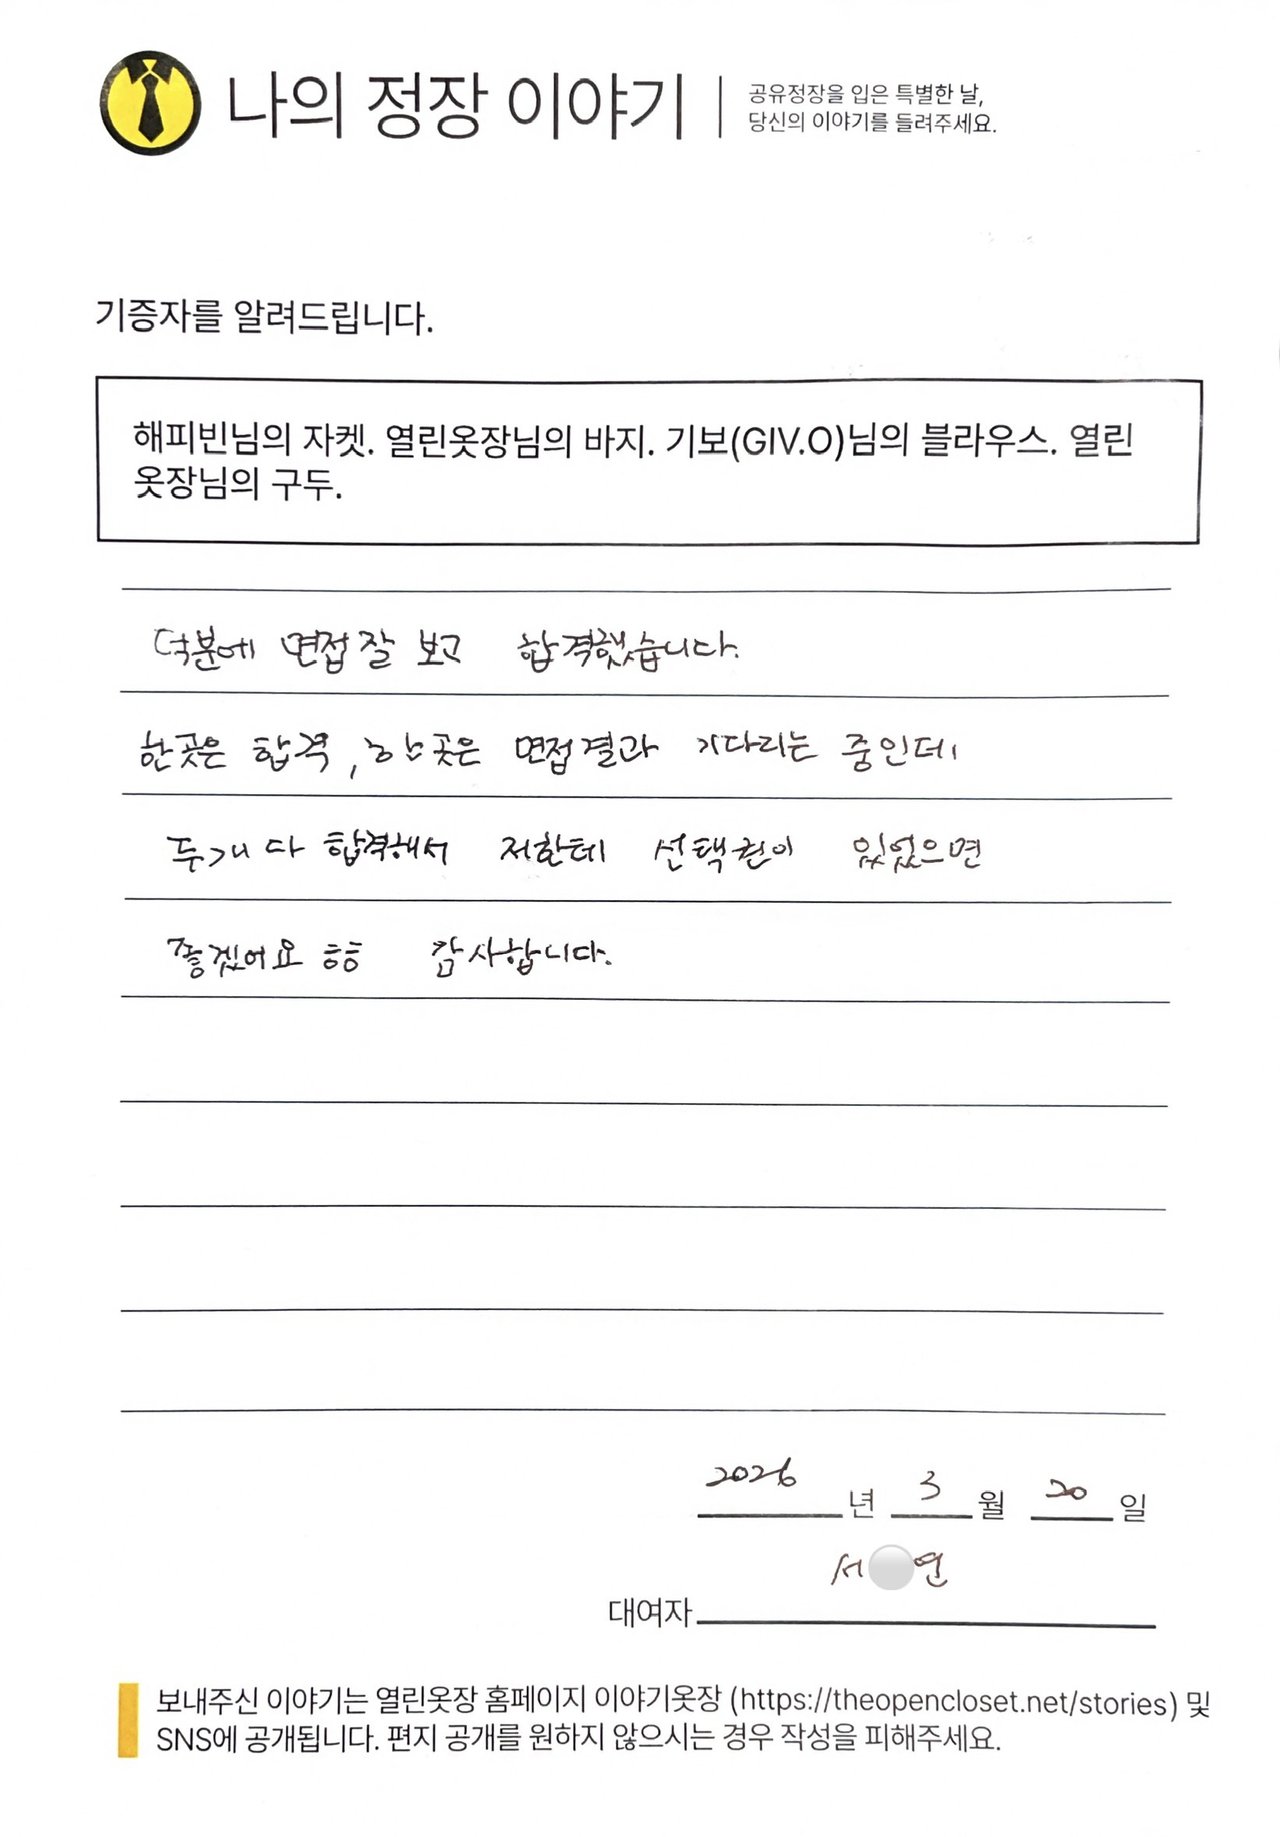 나의 정장 이야기
공유정장을 입은 특별한 날,
당신의 이야기를 들려주세요.
기증자를 알려드립니다.
해피빈님의 자켓. 열린옷장님의 바지. 기보(GIV.O)님의 블라우스. 열린
옷장님의 구두.
덕분에 면접 잘 보고 합격했습니다.
한곳은 합격, 한곳은 면접결과 기다리는 중인데
두개 다 합격해서 저한테 선택권이 있었으면
좋겠어요 ㅎㅎ 감사합니다.
2026 년 3 월 20 일
서 연
대여자
보내주신 이야기는 열린옷장 홈페이지 이야기옷장 (https://theopencloset.net/stories) 및
SNS에 공개됩니다. 편지 공개를 원하지 않으시는 경우 작성을 피해주세요.